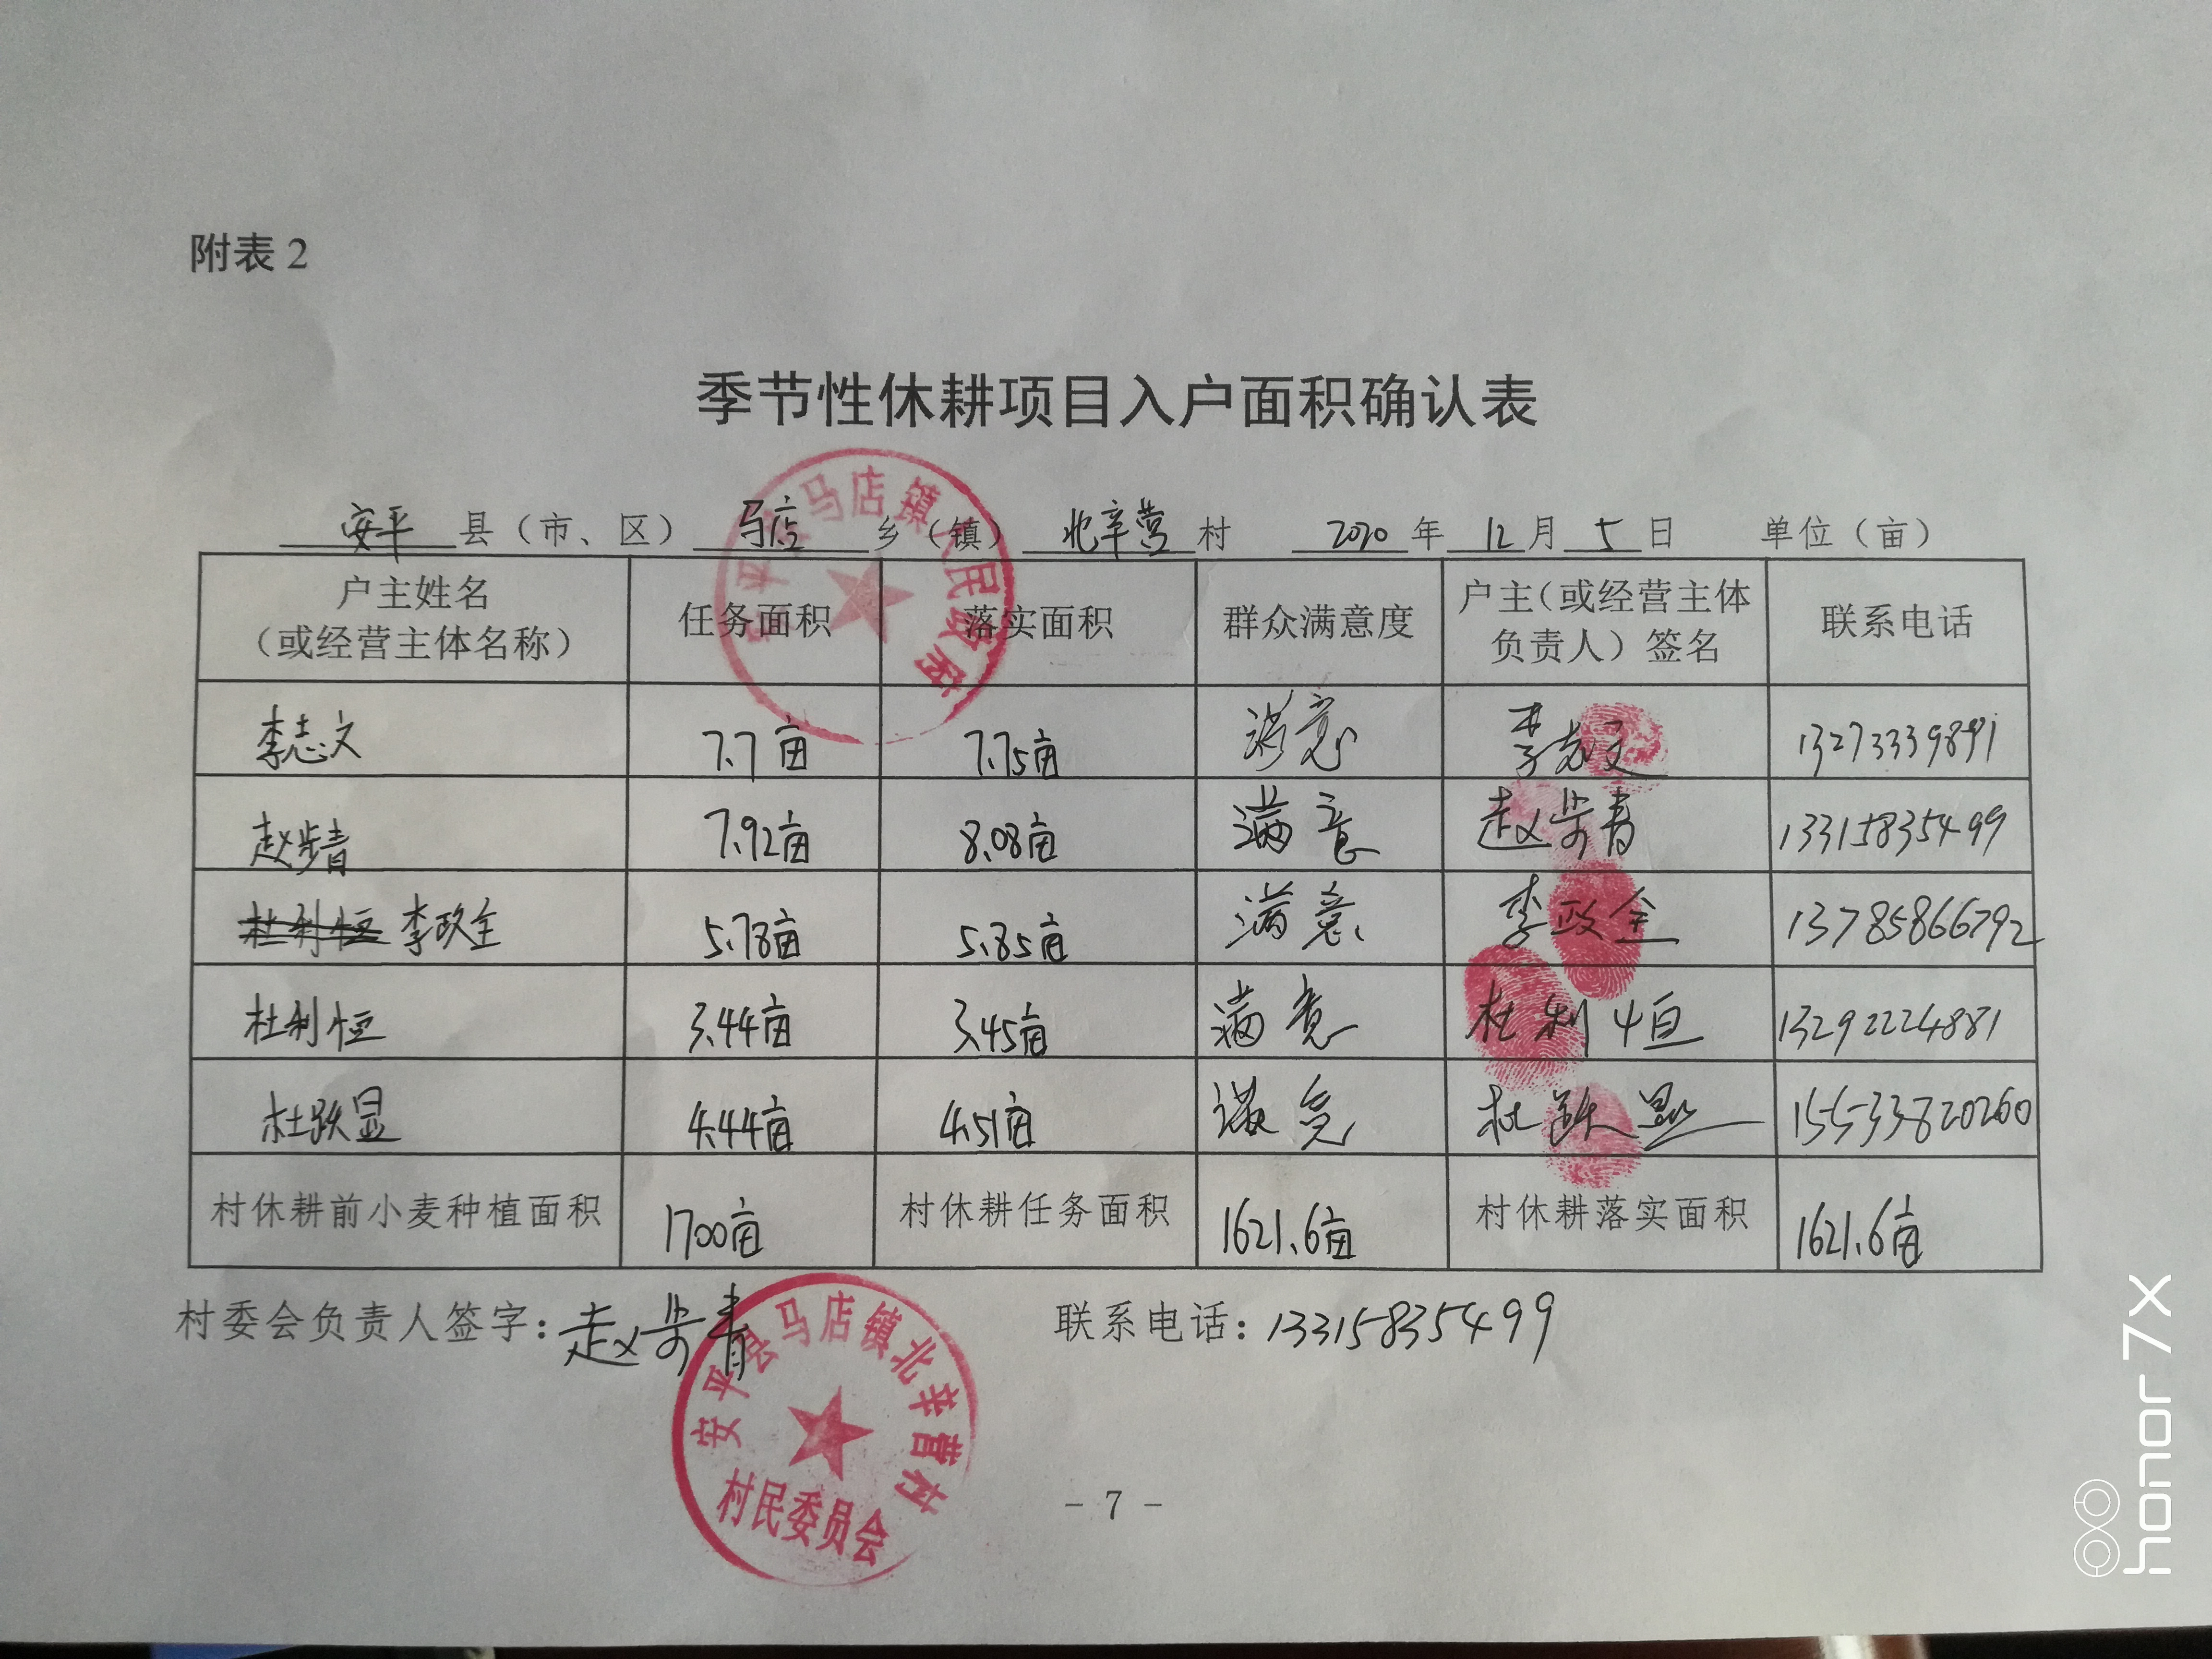 附表 2
季节性休耕项目入户面积确认表
安平 县（市、区） 马店 乡（镇） 北辛营 村 2020 年 12 月 5 日 单位（亩）
户主姓名（或经营主体名称） 任务面积 落实面积 群众满意度 户主（或经营主体负责人）签名 联系电话
李志文 7.7亩 7.75亩 满意 李志文 13273339891
赵步青 7.92亩 8.08亩 满意 赵步青 13315835499
杜利恒 李政全 5.78亩 5.85亩 满意 李政全 13785866792
杜利恒 3.44亩 3.45亩 满意 杜利恒 13292224881
杜跃显 4.44亩 4.51亩 满意 杜跃显 15533820260
村休耕前小麦种植面积 1700亩 村休耕任务面积 1621.6亩 村休耕落实面积 1621.6亩
村委会负责人签字：赵步青 联系电话：13315835499
安平县马店镇人民政府
安平县马店镇北辛营村
村民委员会
- 7 -
honor 7X